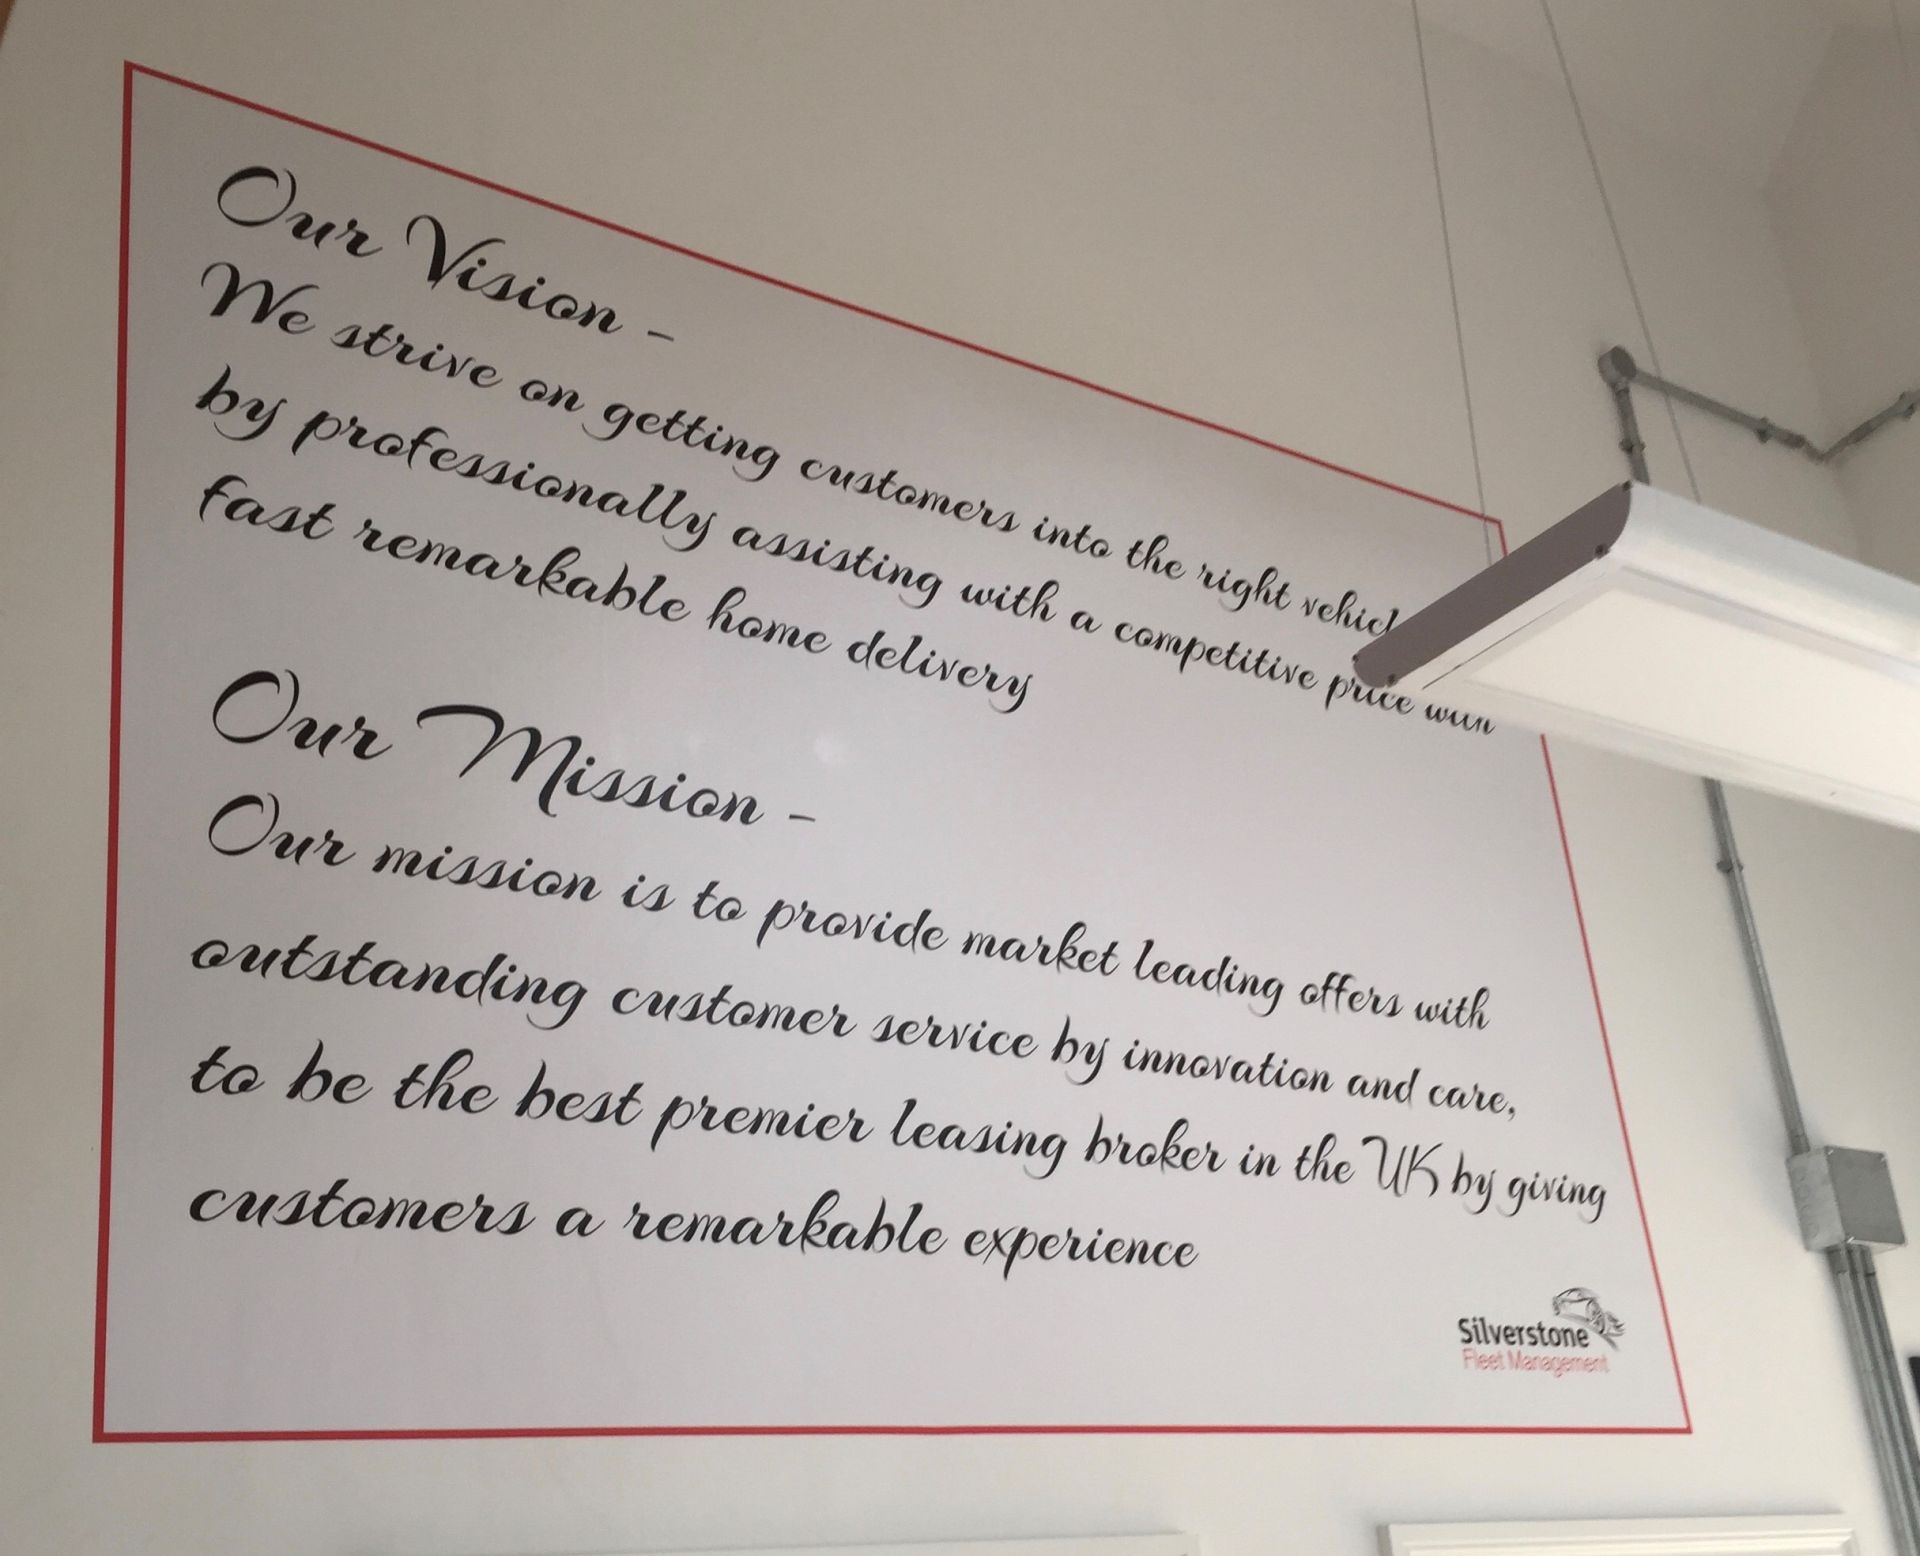 Our Vision -
We strive on getting customers into the right
by professionally assisting with a competitive price with
fast remarkable home delivery
Our Mission -
Our mission is to provide market leading offers with
outstanding customer service by innovation and care,
to be the best premier leasing broker in the UK by giving
customers a remarkable experience
Silverstone
Fleet Management